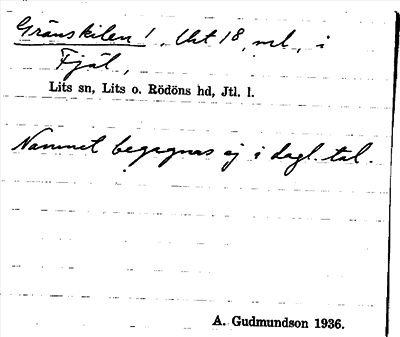 Gränskilen 1, Uht 18, nel, i
Fjäl,
Lits sn, Lits o. Rödöns hd, Jtl. l.
Namnet begagnas ej i dagl. tal.
A. Gudmundson 1936.